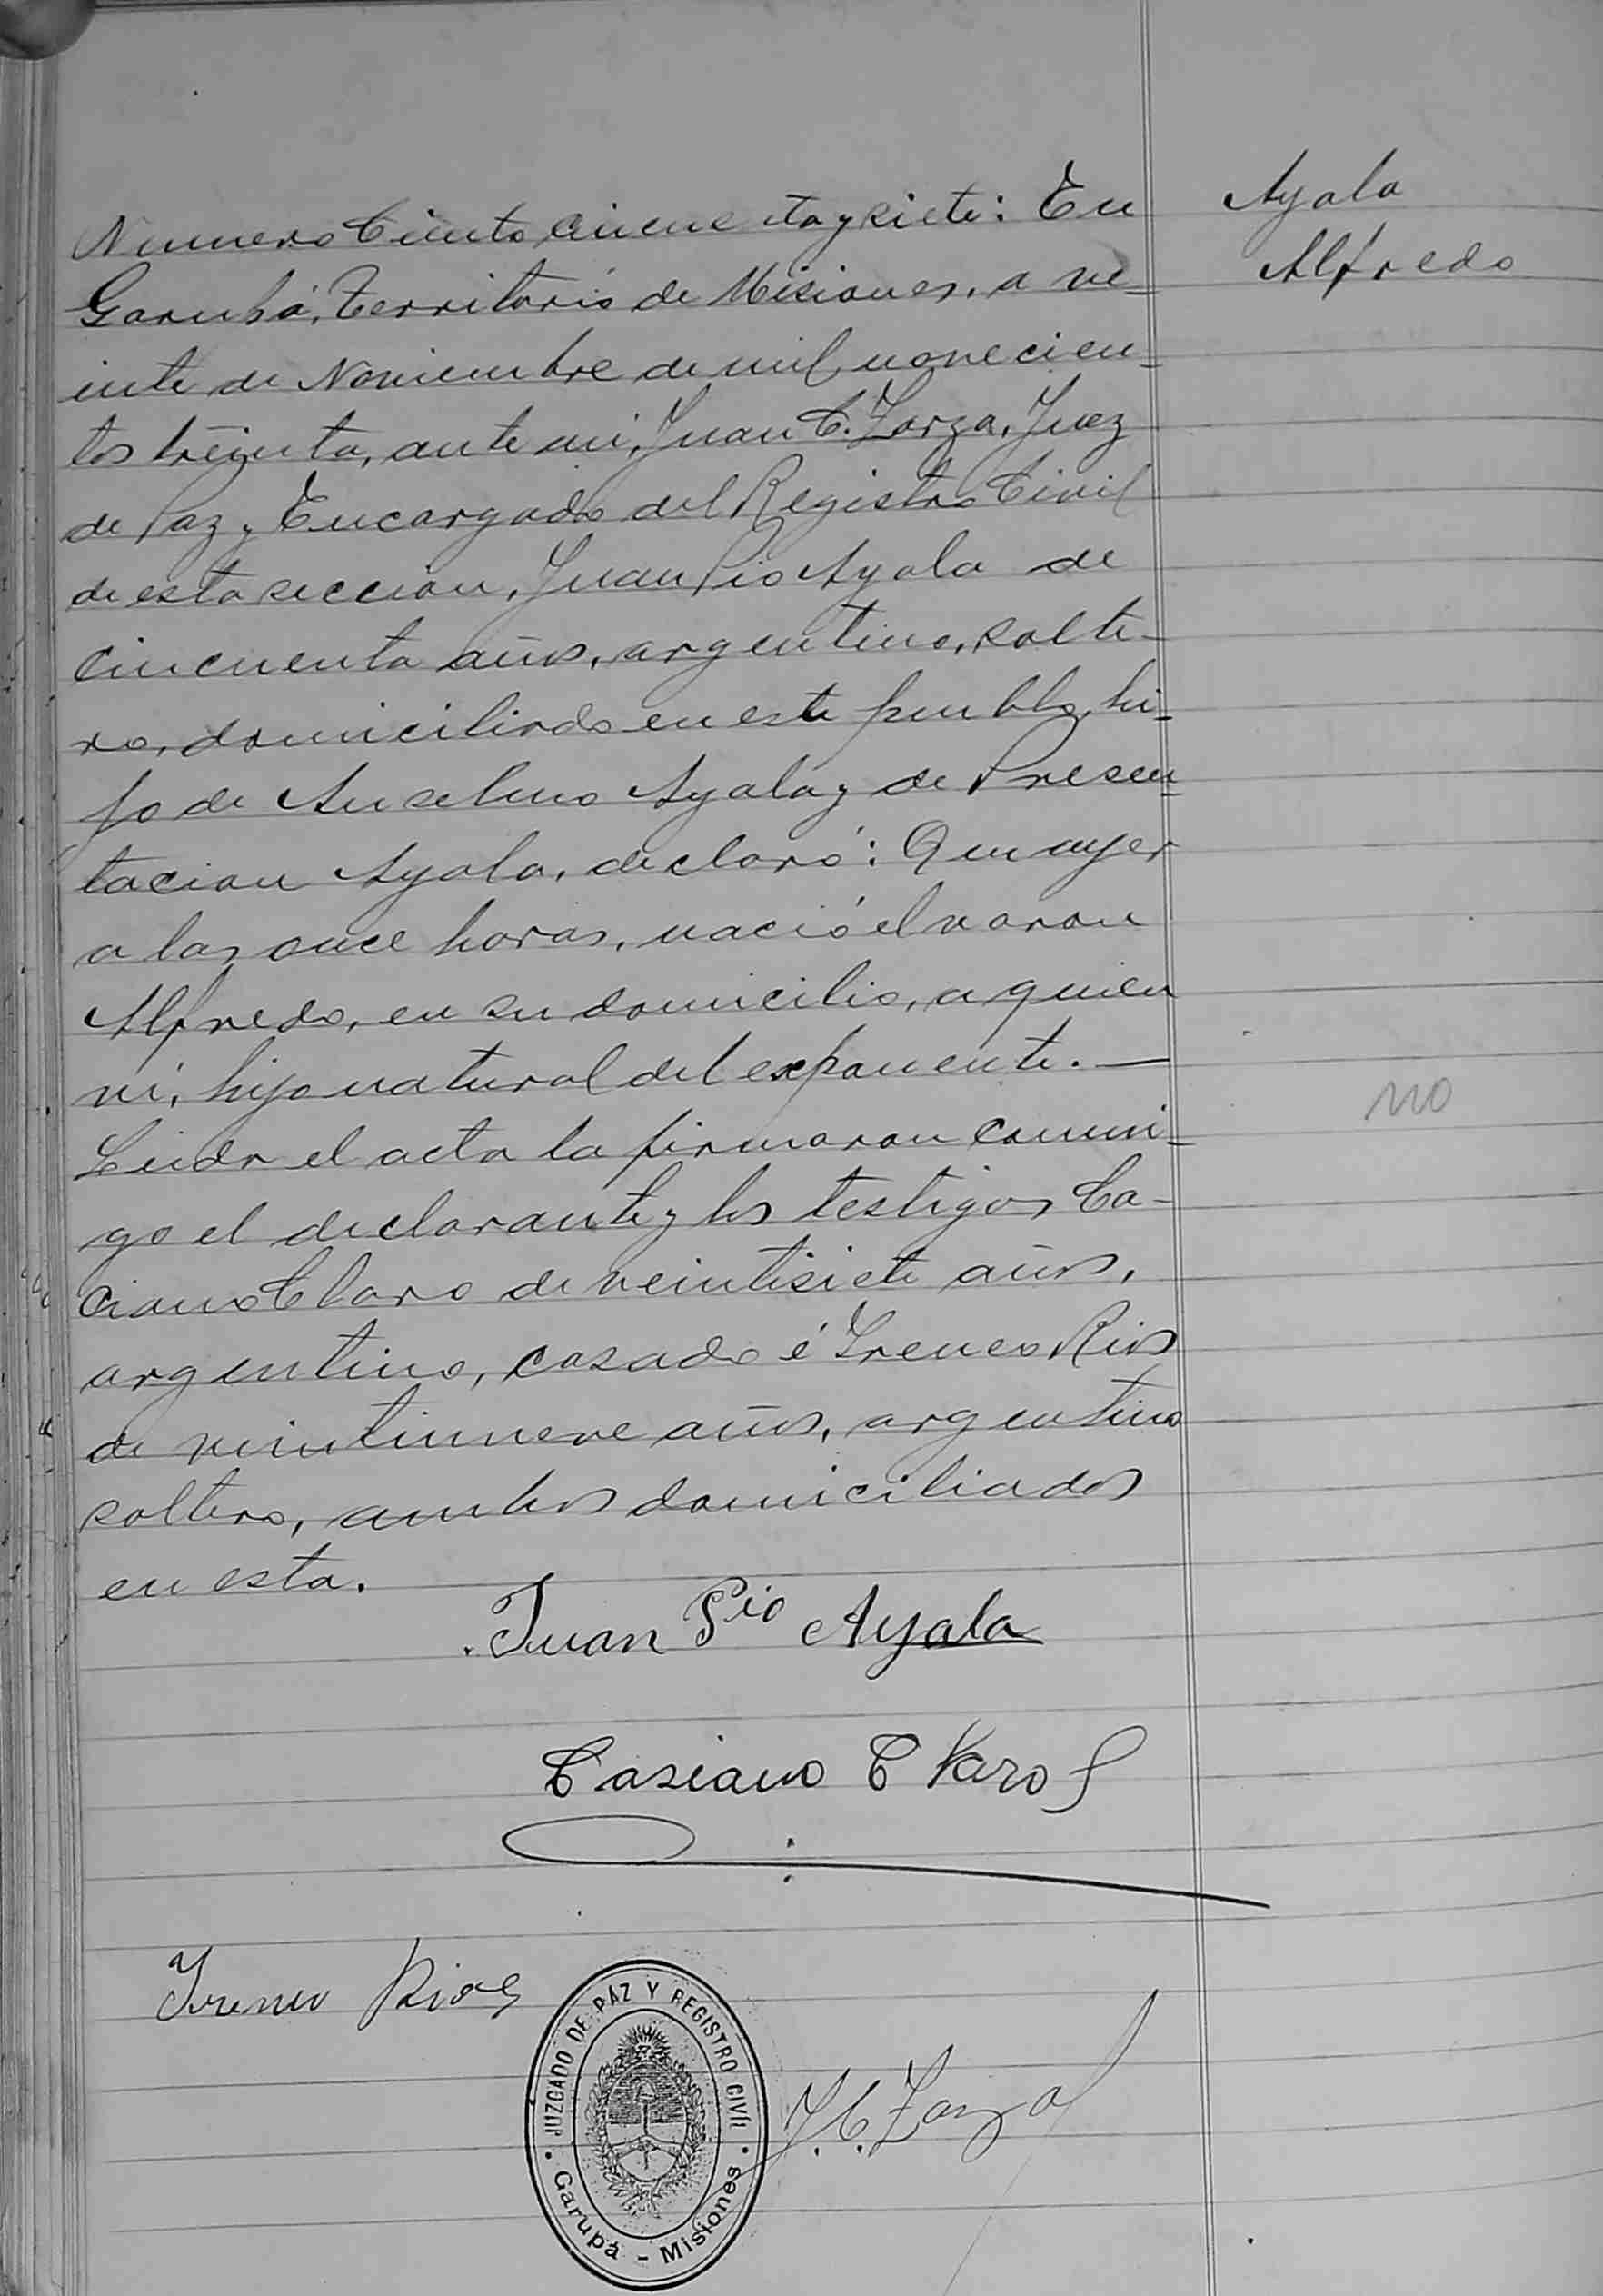 Ayala
Alfredo
Numero Ciento cincuenta y siete: En
Garupá, Territorio de Misiones, a ve-
inte de Noviembre de mil novecien-
tos treinta, ante mi, Juan C. Zarza, Juez
de Paz y Encargado del Registro Civil
de esta seccion, Juan Pio Ayala de
cincuenta años, argentino, solte-
ro, domiciliado en este pueblo, hi-
jo de Anselmo Ayala y de Presen-
tacion Ayala, declaró: Que ayer
a las once horas, nació el varon
Alfredo, en su domicilio, a quien
vi, hijo natural del exponente. —
Leida el acta la firmaron conmi-
go el declarante y los testigos Ca-
ciano Claro de veintisiete años,
argentino, casado é Ireneo Rios
de veintinueve años, argentino
soltero, ambos domiciliados
en esta.
Juan Pio Ayala
Casiano Claro
Ireneo Rios
J. C. Zarza
JUZGADO DE PAZ Y REGISTRO CIVIL
Garupá - Misiones